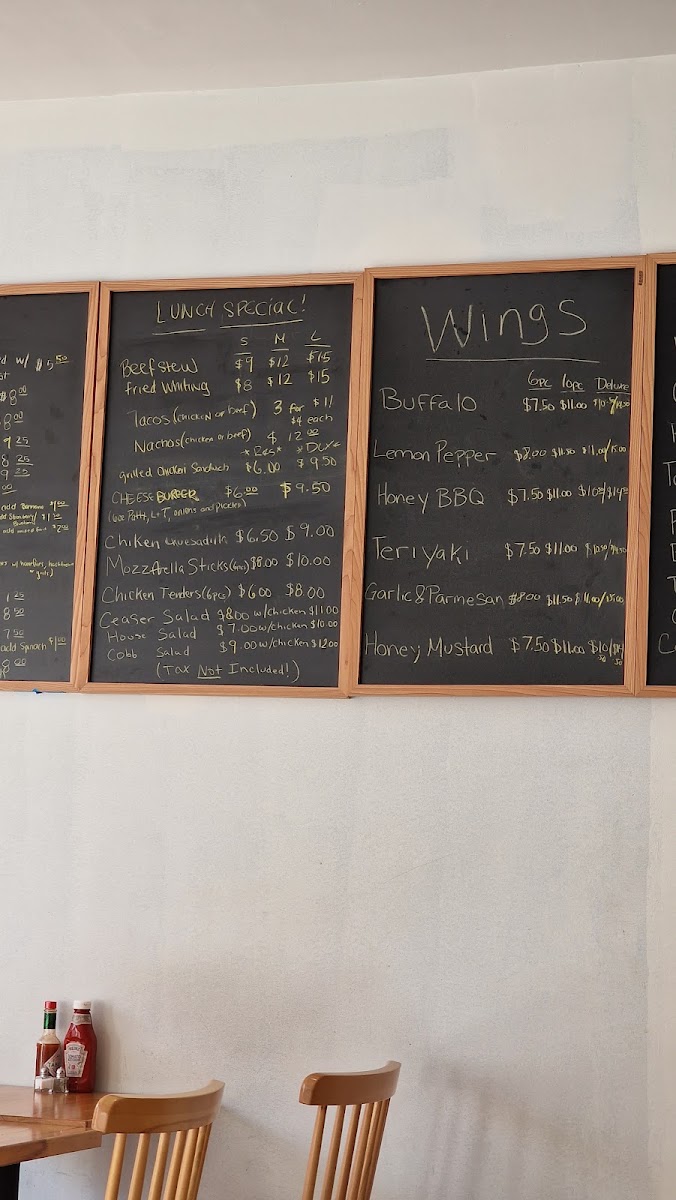 d w/ $5.50
$8.00
8.00
9.25
8.25
9.25
.00
add Banana $1.00
1.25
8.50
7.50
add Spinach $1.00
8.00
LUNCH SPECIAL!
S M L
Beef stew $9 $12 $15
fried Whiting $8 $12 $15
Tacos (chicken or beef) 3 for $11
$4 each
Nachos (chicken or beef) $12.00
*Reg* *DLX*
grilled chicken Sandwich $6.00 $9.50
CHEESE BURGER $6.00 $9.50
(6oz Patty, L&T, onions and pickles)
Chiken Quesadilla $6.50 $9.00
Mozzarella Sticks (6pc) $8.00 $10.00
Chicken Tenders (6pcs) $6.00 $8.00
Ceaser Salad $8.00 w/chicken $11.00
House Salad $7.00 w/chicken $10.00
Cobb Salad $9.00 w/chicken $12.00
(Tax Not Included!)
Wings
6pc 10pc Deluxe
Buffalo $7.50 $11.00 $10.50/$14.50
Lemon Pepper $8.00 $11.50 $11.00/15.00
Honey BBQ $7.50 $11.00 $10.50/$14.50
Teriyaki $7.50 $11.00 $10.50/$14.50
Garlic & Parmesan $8.00 $11.50 $11.00/15.00
Honey Mustard $7.50 $11.00 $10.50/$14.50